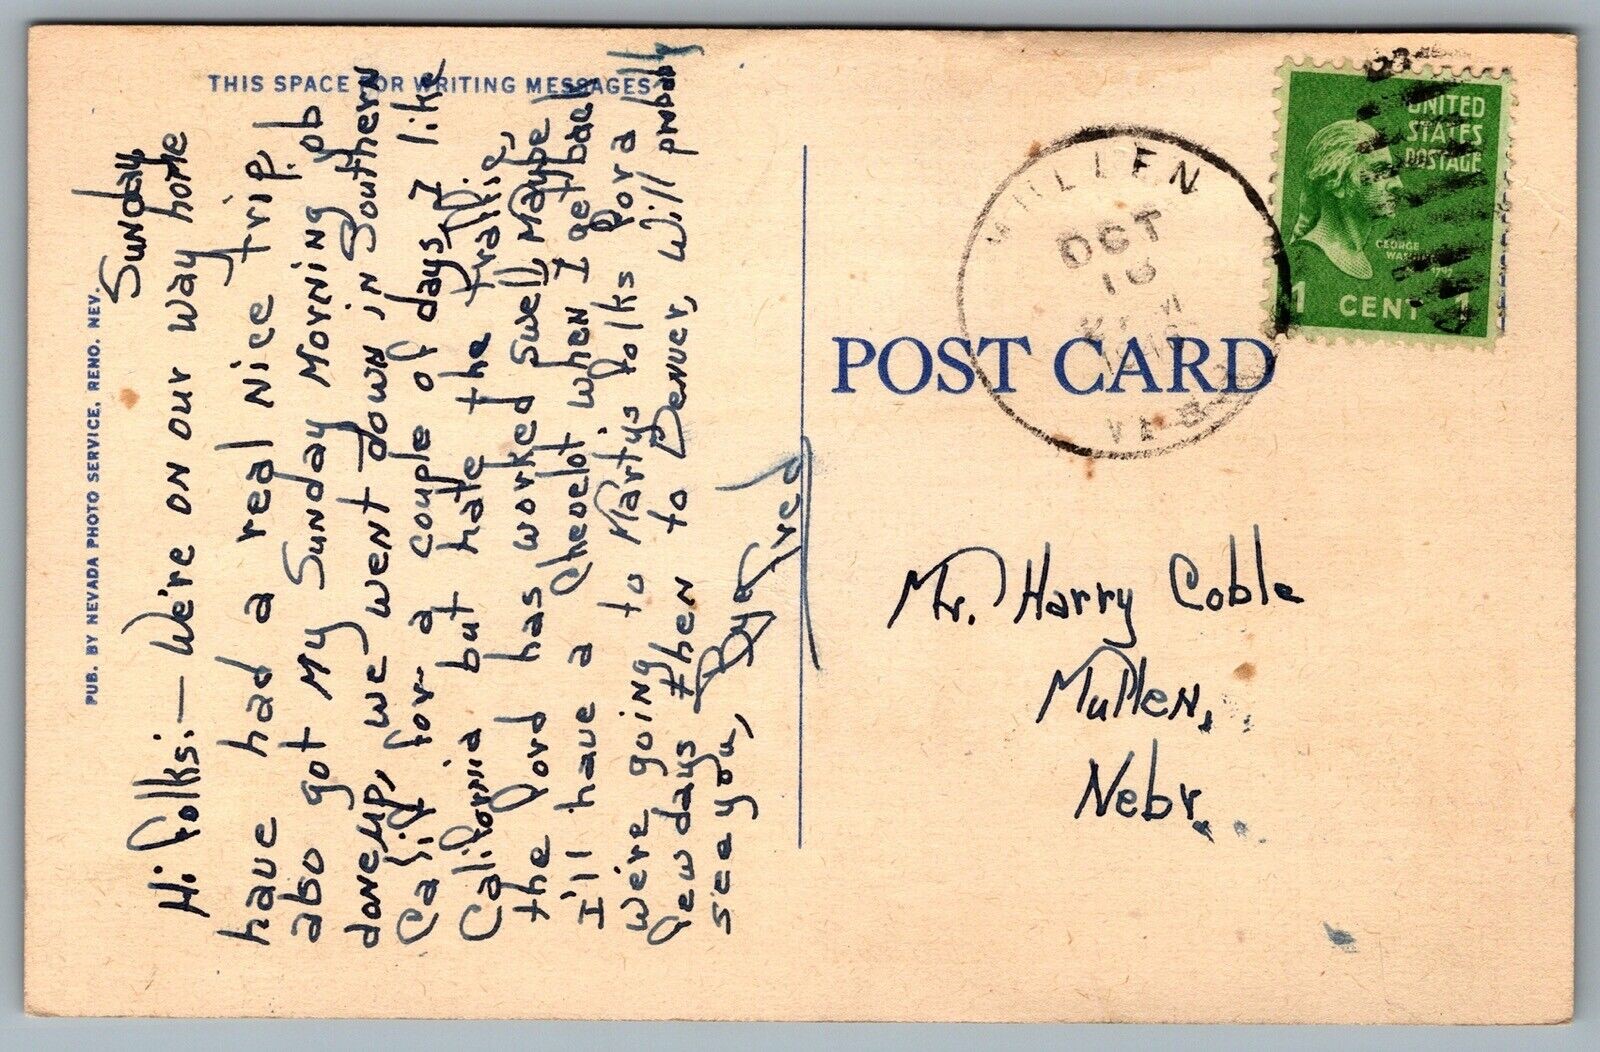 THIS SPACE FOR WRITING MESSAGES
PUB. BY NEVADA PHOTO SERVICE, RENO. NEV.
Sunday
Hi folks:— We're on our way home
have had a real nice trip,
also got my Sunday Morning job
done up, we went down in Southern
Calif for a couple of days I like
California but hate the traffic,
the Ford has worked swell, Maybe
I'll have a Chevelot when I get back
We're going to Martys folks for a
few days then to Denver, Will probably
see you,
Bye Fred
UNITED
STATES
POSTAGE
GEORGE
1 CENT 1
MULLEN
OCT
16
NEBR
POST CARD
Mr. Harry Coble
Mullen,
Nebr.